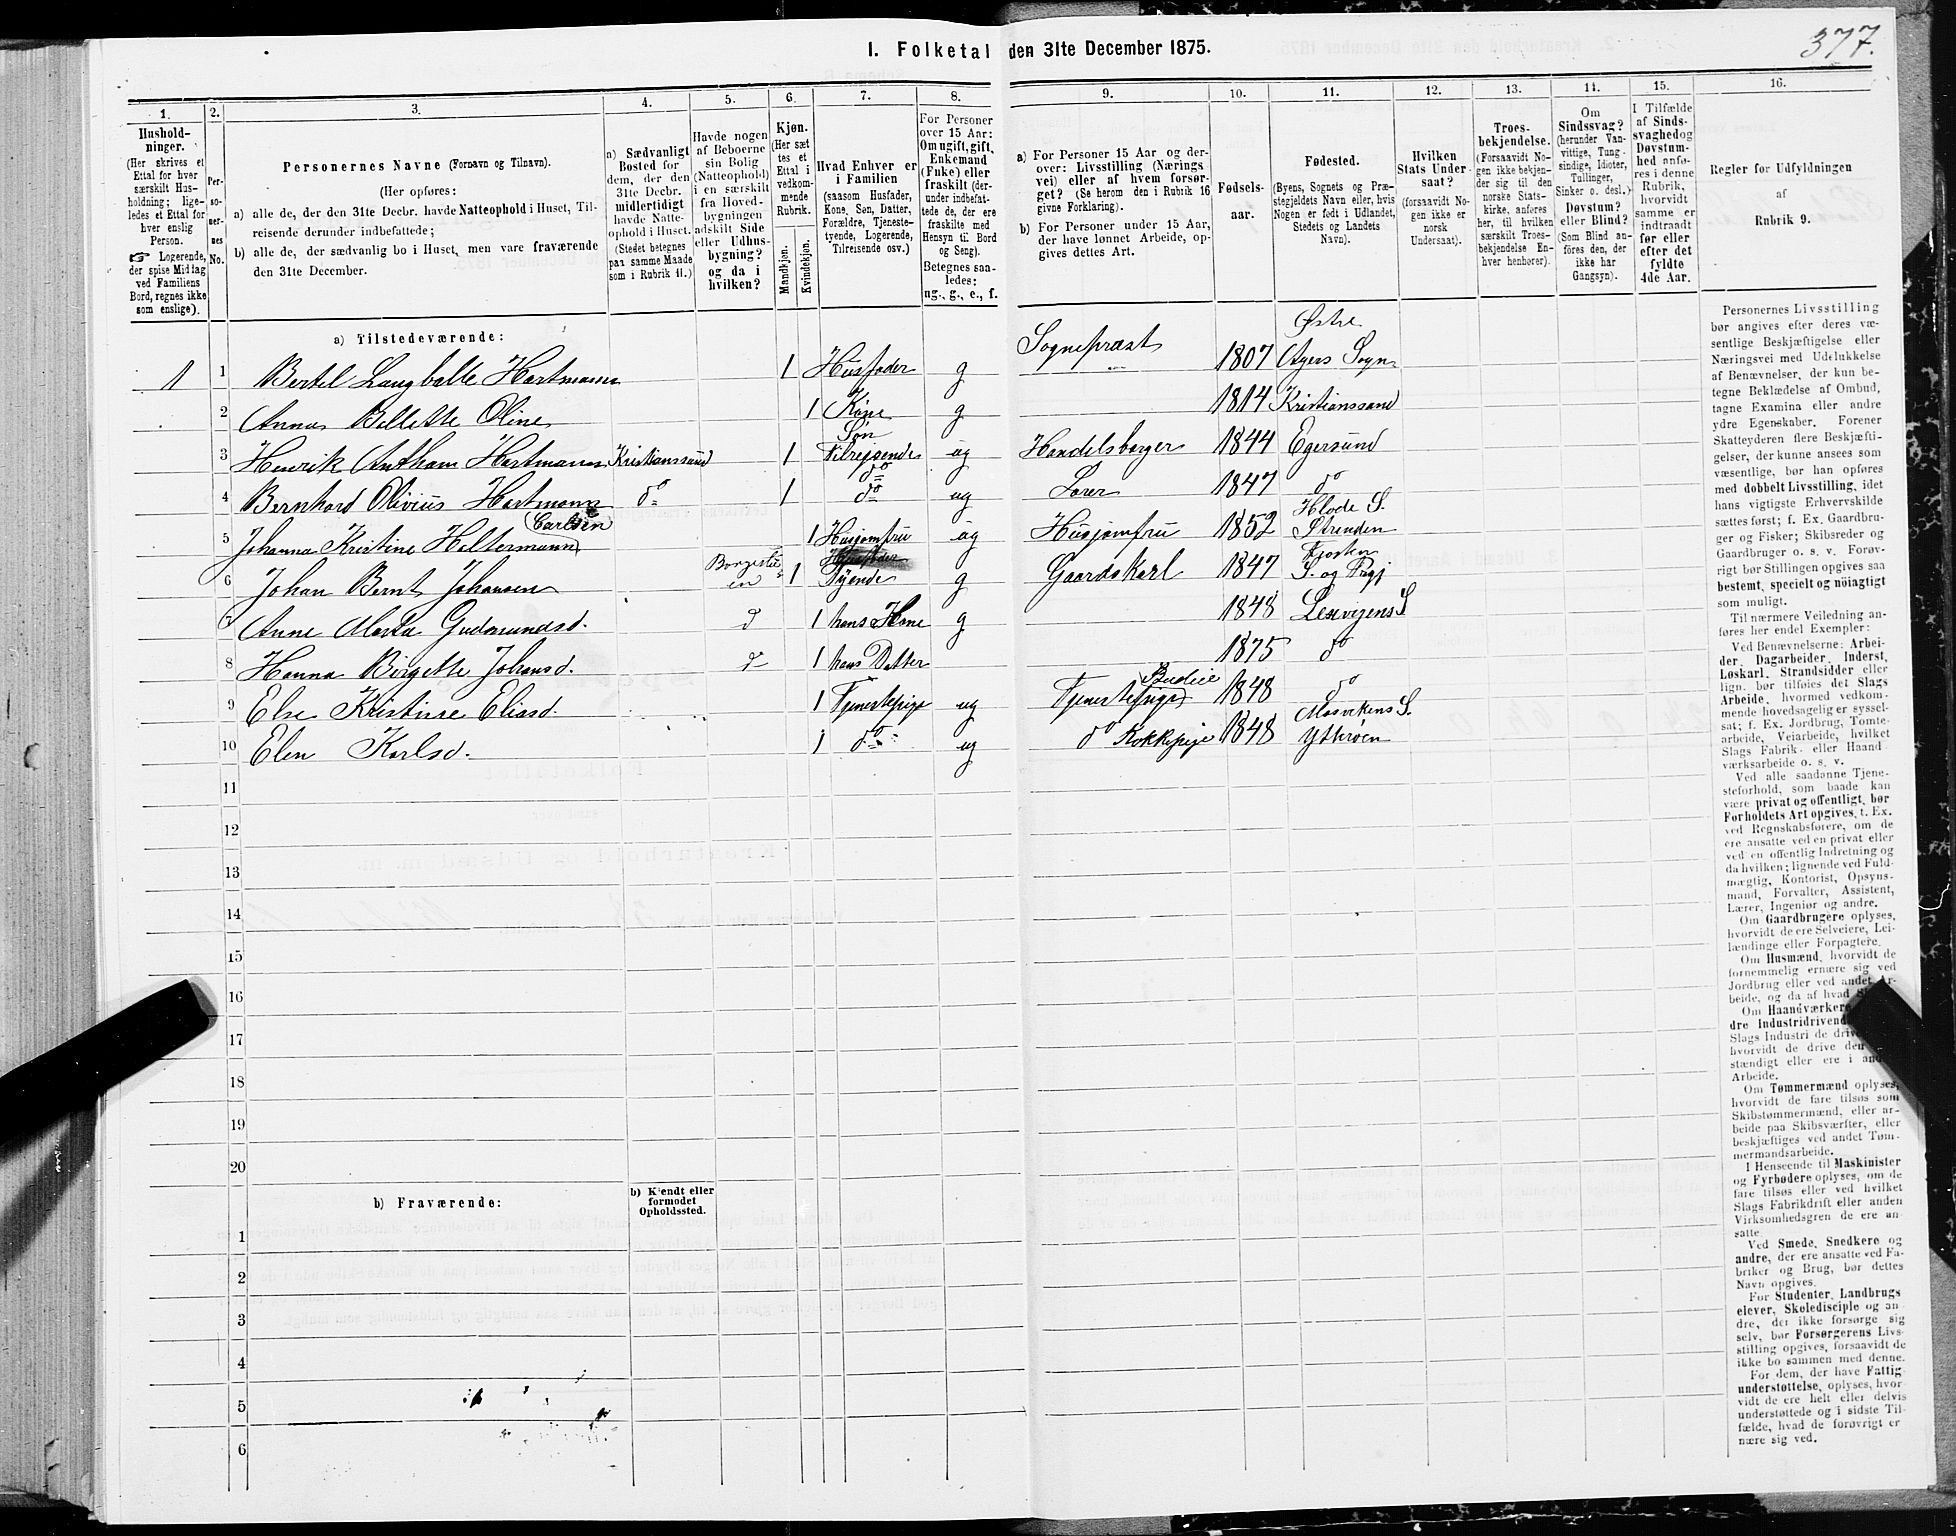 I. Folketal den 31te December 1875.
377.
1.
Hushold-
ninger.
(Her skrives et
Ettal for hver
særskilt Hus-
holdning; lige-
ledes et Ettal for
hver enslig
Person.
☞ Logerende,
der spise Middag
ved Familiens
Bord, regnes ikke
som enslige).
2.
Per-
so-
ner-
nes
No.
3.
Personernes Navne (Fornavn og Tilnavn).
(Her opføres:
a) alle de, der den 31te Decbr. havde Natteophold i Huset, Til-
reisende derunder indbefattede;
b) alle de, der sædvanlig bo i Huset, men vare fraværende
den 31te December.
4.
a) Sædvanligt
Bosted for
dem, der den
31te Decbr.
midlertidigt
havde Natte-
ophold i Huset.
(Stedet betegnes
paa samme Maade
som i Rubrik 11.)
5.
Havde nogen
af Beboerne
sin Bolig
(Natteophold)
i en særskilt
fra Hoved-
bygningen
adskilt Side
eller Udhus-
bygning?
og da i
hvilken?
6.
Kjøn.
(Her sæt
tes et
Ettal i
vedkom-
mende
Rubrik.
Mandkjøn.
Kvindekjøn.
7.
Hvad Enhver er
i Familien
(saasom Husfader,
Kone, Søn, Datter,
Forældre, Tjeneste-
tyende, Logerende,
Tilreisende osv.)
8.
For Personer
over 15 Aar:
Om ugift, gift,
Enkemand
(Enke) eller
fraskilt (der-
under indbefat-
tede de, der ere
fraskilte med
Hensyn til Bord
og Seng).
Betegnes saa-
ledes:
ug., g., e., f.
9.
a) For Personer 15 Aar og der-
over: Livsstilling (Nærings
vei) eller af hvem forsør-
get? (Se herom den i Rubrik 16
givne Forklaring).
b) For Personer under 15 Aar,
der have lønnet Arbeide, op-
gives dettes Art.
10.
Fødsels-
aar.
11.
Fødested.
(Byens, Sognets og Præ-
stegjeldets Navn eller, hvis
Nogen er født i Udlandet,
Stedets og Landets
Navn).
12.
Hvilken
Stats Under-
saat?
(forsaavidt No-
gen ikke er
norsk
Undersaat).
13.
Troes-
bekjendelse.
(Forsaavidt No-
gen ikke bekjen-
der sig til den
norske Stats-
kirke, anføres
her, til hvilken
særskilt Troes-
bekjendelse En-
hver henhører).
14.
Om
Sindssvag?
(herunder Van-
vittige, Tung-
sindige, Idioter,
Tullinger,
Sinker o. desl.)
Døvstum?
eller Blind?
(Som Blind an-
føres den, der
ikke har
Gangsyn).
15.
I Tilfælde
af Sinds-
svaghedog
Døvstum-
hed anfø-
res i denne
Rubrik,
hvorvidt
samme er
indtraadt
før eller
efter det
fyldte
4de Aar.
16.
Regler for Udfyldningen
af
Rubrik 9.
a) Tilstedeværende:
1 1 Bertel Langballe Hartmann 1 Husfader g Sognepræst 1807 Østre Agers Sogn
2 Anna Billette Oline 1 Kone g 1814 Kristianssand
3 Henrik Antham Hartmann Kristianssund 1 Søn Tilreisende ug Handelsborger 1844 Egersund
4 Bernhard Olivius Hartmann do 1 do do ug Lærer 1847 do
5 Johanna Kristine Holtermann (Carlsen) 1 Husjomfru ug Husjomfru 1852 Strenden
6 Johan Bernt Johansen Borgestuen 1 Tyende g Gaardskarl 1847 S. og Prgj
7 Anne Marta Gudmundsd. d 1 hans Kone g 1848 Lexvigens S
8 Hanna Birgette Johansd. d 1 hans Datter 1875 do
9 Else Kristine Eliasd. 1 Tjenestepige ug Tjenestepige Budeie 1848 do
10 Elen Karlsd. 1 do ug do Kokkepige 1848 Mosvikens S. Ytterøen
11
12
13
14
15
16
17
18
19
20
b) Fraværende:
b) Kjendt eller
formodet
Opholdssted.
1
2
3
4
5
6
Personernes Livsstilling
bør angives efter deres væ-
sentlige Beskjæftigelse eller
Næringsvei med Udelukkelse
af Benævnelser, der kun be-
tegne Beklædelse af Ombud,
tagne Examina eller andre
ydre Egenskaber. Forener
Skatteyderen flere Beskjæfti-
gelser, der kunne ansees som
væsentlige, bør han opføres
med dobbelt Livsstilling, idet
hans vigtigste Erhvervskilde
sættes først; f. Ex. Gaardbru-
ger og Fisker; Skibsreder og
Gaardbruger o. s. v. Forøv-
rigt bør Stillingen opgives saa
bestemt, specielt og nöiagtigt
som muligt.
Til nærmere Veiledning an-
føres her endel Exempler:
Ved Benævnelserne: Arbei-
der, Dagarbeider, Inderst,
Løskarl, Strandsidder eller
lign. bør tilføies det Slags
Arbeide, hvormed vedkom-
mende hovedsagelig er syssel-
sat; f. Ex. Jordbrug, Tomte-
arbeide, Veiarbeide, hvilket
Slags Fabrik- eller Haand-
værksarbeide o. s. v.
Ved alle saadanne Tjene-
steforhold, som baade kan
være privat og offentligt, bør
Forholdets Art opgives, t. Ex.
ved Regnskabsførere, om de
ere ansatte ved en privat eller
ved en offentlig Indretning og
da hvilken; lignende ved Fuld-
mægtig, Kontorist, Opsyns-
mand, Forvalter, Assistent,
Lærer, Ingeniør og andre.
Om Gaardbrugere oplyses,
hvorvidt de ere Selveiere, Lei-
lændinge eller Forpagtere.
Om Husmænd, hvorvidt de
fornemmelig ernære sig ved
Jordbrug eller ved andet Ar-
beide, og da af hvad
Om Haandværkere
dre Industridrivend
Slags Industri de drive
hvorvidt de drive den
stændigt eller ere i
Arbeide.
Om Tømmermænd oplyses,
hvorvidt de fare tilsøs som
Skibstømmermænd, eller ar-
beide paa Skibsværfter, eller
beskjæftiges ved andet Tøm-
mermandsarbeide.
I Henseende til Maskinister
og Fyrbødere oplyses, om de
fare tilsøs eller ved hvilket
Slags Fabrikdrift eller anden
Virksomhedsgren de ere an-
satte.
Ved Smede, Snedkere og
andre, der ere ansatte ved Fa-
briker og Brug, bør dettes
Navn opgives.
For Studenter, Landbrugs
elever, Skoledisciple og an-
dre, der ikke forsørge sig
selv, bør Forsørgerens Livs-
stilling opgives, forsaavidt de
ikke bo sammen med denne.
For dem, der have Fattig-
understøttelse, oplyses, hvor-
vidt de ere helt eller delvis
understøttede og i sidste Til-
fælde, hvad de forøvrigt er
nære sig ved.